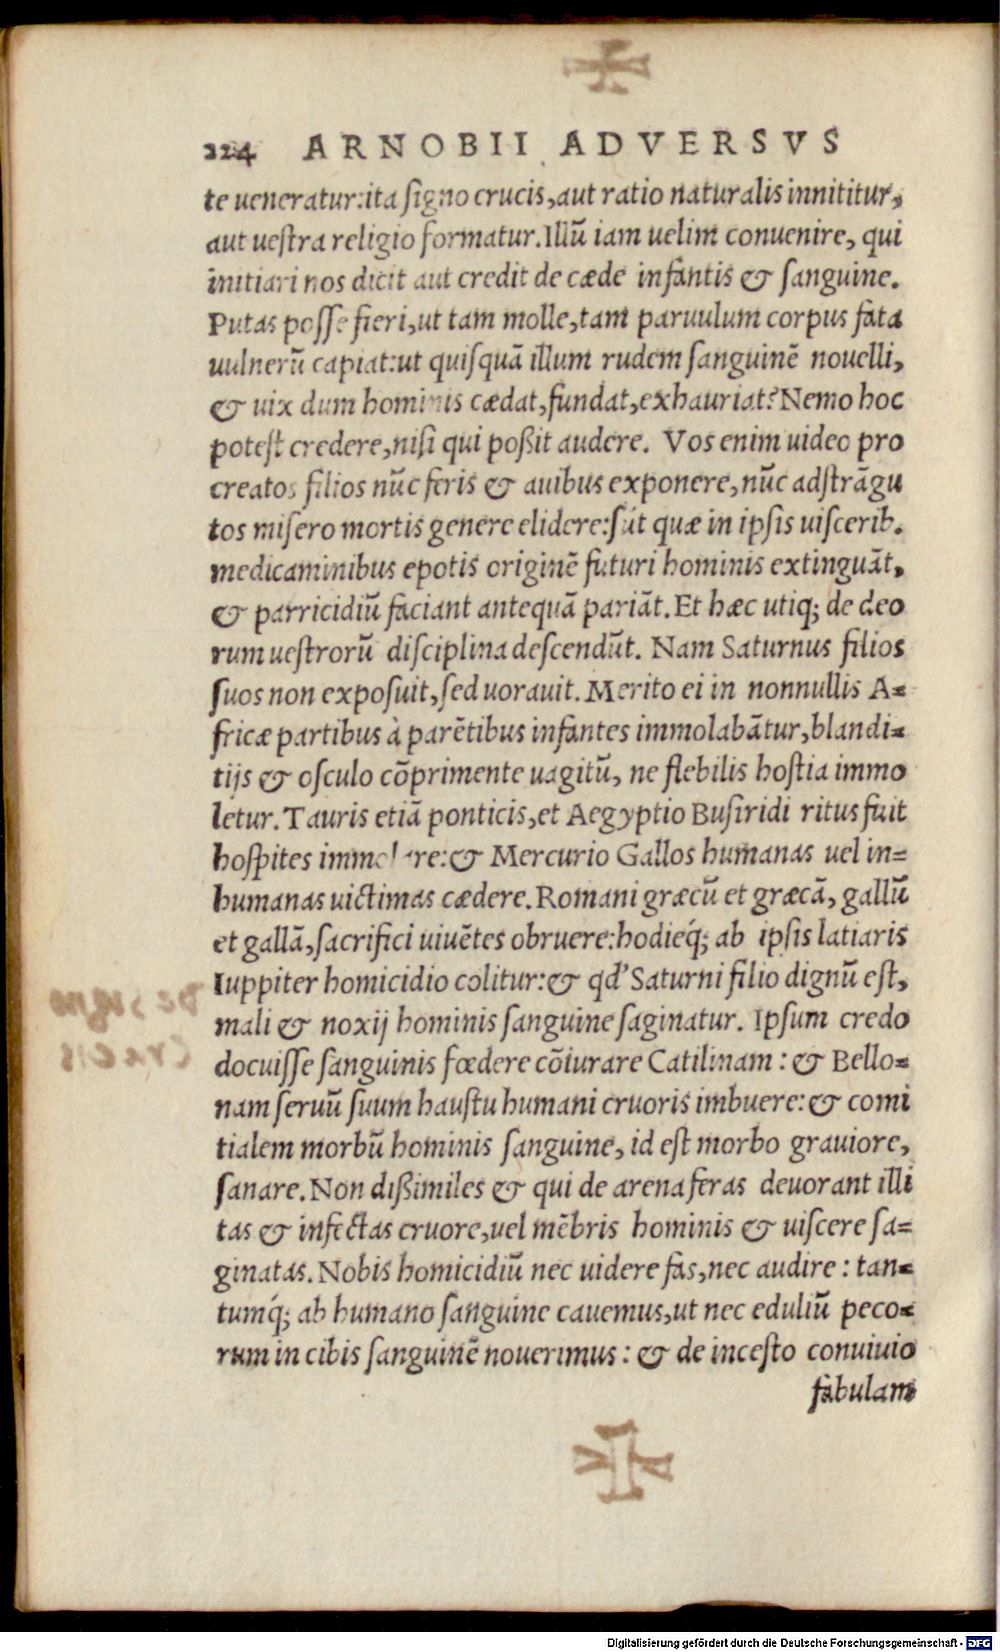 224 ARNOBII ADVERSVS
te ueneratur:ita signo crucis,aut ratio naturalis innititur,
aut uestra religio formatur.Illũ iam uelim conuenire, qui
initiari nos dicit aut credit de cæde infantis & sanguine.
Putas posse fieri,ut tam molle,tam paruulum corpus fata
uulnerũ capiat:ut quisquã illum rudem sanguinẽ nouelli,
& uix dum hominis cædat,fundat,exhauriat?Nemo hoc
potest credere,nisi qui poßit audere. Vos enim uideo pro
creatos filios nũc feris & auibus exponere,nũc adstrãgu
tos misero mortis genere elidere:sũt quæ in ipsis uiscerib.
medicaminibus epotis originẽ futuri hominis extinguãt,
& parricidiũ faciant antequã pariãt.Et hæc utiq; de deo
rum uestrorũ disciplina descendũt. Nam Saturnus filios
suos non exposuit,sed uorauit.Merito ei in nonnullis A=
fricæ partibus à parẽtibus infantes immolabãtur,blandi=
tijs & osculo cõprimente uagitũ, ne flebilis hostia immo
letur.Tauris etiã ponticis,et Aegyptio Busiridi ritus fuit
hospites immolare:& Mercurio Gallos humanas uel in=
humanas uictimas cædere.Romani græcũ et græcã, gallũ
et gallã,sacrifici uiuẽtes obruere:hodieq́; ab ipsis latiaris
Iuppiter homicidio colitur:& qd' Saturni filio dignũ est,
mali & noxij hominis sanguine saginatur. Ipsum credo
docuisse sanguinis fœdere cõiurare Catilinam : & Bello=
nam seruũ suum haustu humani cruoris imbuere:& comi
tialem morbũ hominis sanguine, id est morbo grauiore,
sanare.Non dißimiles & qui de arena feras deuorant illi
tas & infectas cruore,uel mẽbris hominis & uiscere sa=
ginatas.Nobis homicidiũ nec uidere fas,nec audire : tan=
tumq́; ab humano sanguine cauemus,ut nec eduliũ peco=
rum in cibis sanguinẽ nouerimus : & de incesto conuiuio
fabulam
De signo
Crucis
Digitalisierung gefördert durch die Deutsche Forschungsgemeinschaft - DFG